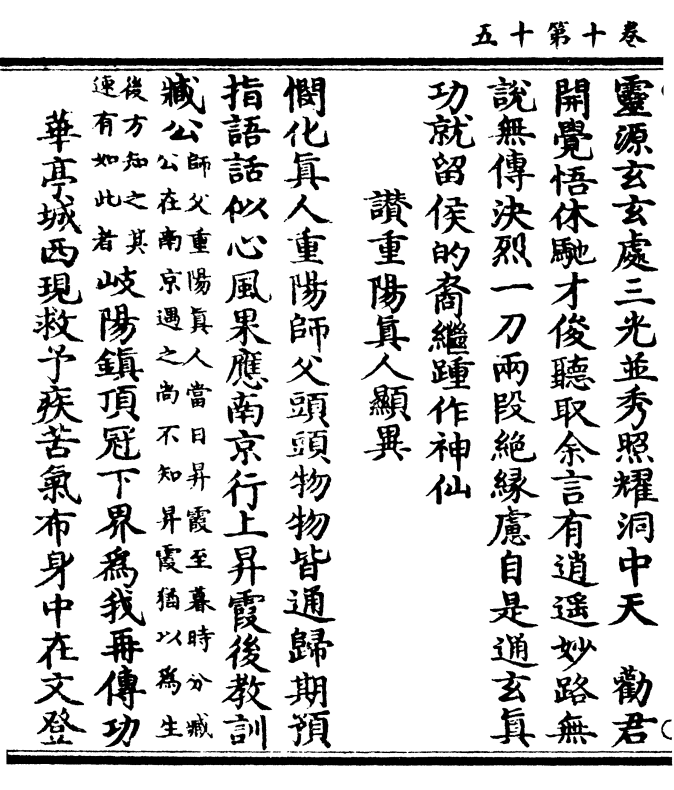 卷十第十五
靈源玄玄處三光並秀照耀洞中天　勸君
開覺悟休馳才俊聽取余言有逍遥妙路無
說無傳決烈一刀兩段絕緣慮自是通玄真
功就留侯的裔繼踵作神仙
讚重陽真人顯異
憫化真人重陽師父頭頭物物皆通歸期預
指語話似心風果應南京行上昇霞後教訓
臧公師父重陽真人當日昇霞至暮時分臧公在南京遇之尚不知昇霞猶以爲生
後方知之其速有如此者岐陽鎮頂冠下界爲我再傳功
華亭城西現救予疾苦氣布身中在文登